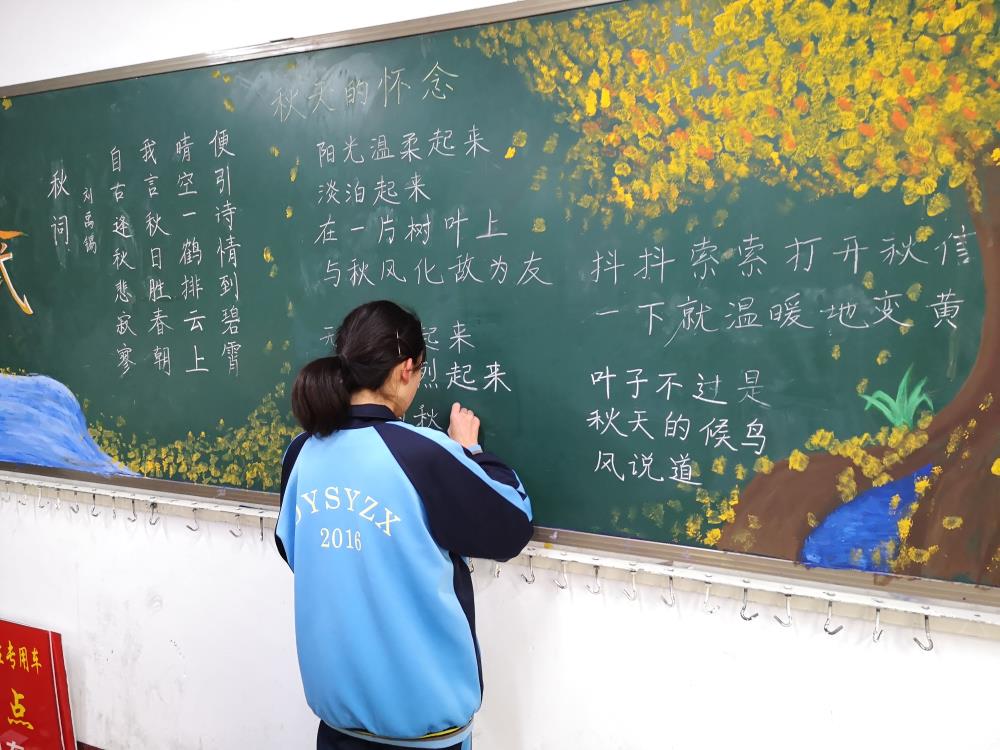 秋天的怀念
秋词
刘禹锡
自古逢秋悲寂寥
我言秋日胜春朝
晴空一鹤排云上
便引诗情到碧霄
阳光温柔起来
淡泊起来
在一片树叶上
与秋风化敌为友
起来
烈起来
秋
抖抖索索打开秋信
一下就温暖地变黄
叶子不过是
秋天的候鸟
风说道
YSYZX
2016
专用车
点